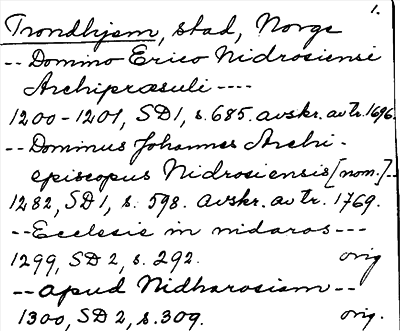 1.
Trondhjem, stad, Norge
-- Domino Erico Nidrosiensi
Archipræsuli ----
1200-1201, SD1, s. 685. avskr. av tr. 1696.
-- Dominus Johannes Archi-
episcopus Nidrosiensis [nom.] --
1282, SD1, s. 598. avskr. av tr. 1769.
-- Ecclesie in nidaros ---
1299, SD2, s. 292. orig
-- apud Nidharosiam --
1300, SD2, s. 309. orig.